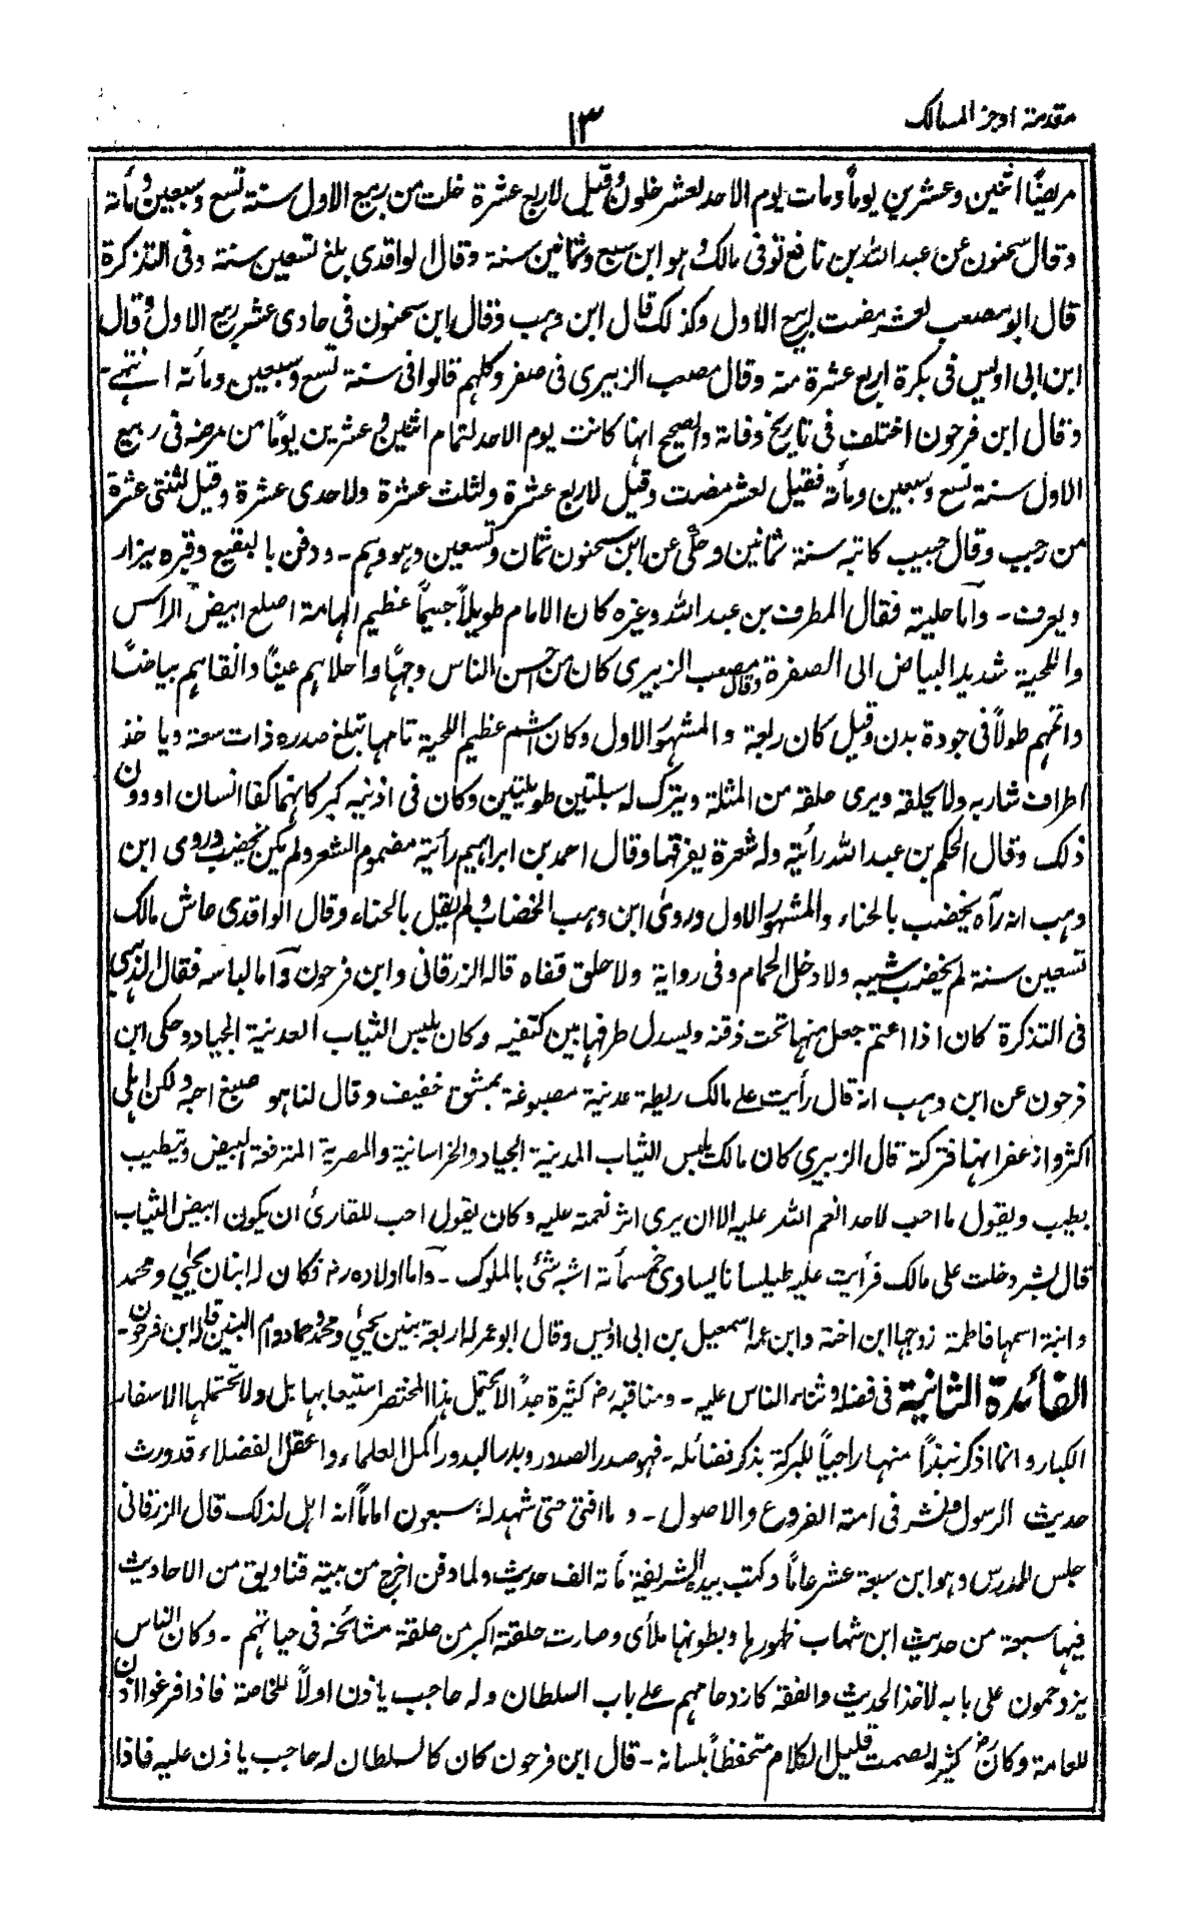 مقدمة اوجز المسالك
١٣
مريضًا اثنين وعشرين يوماً ومات يوم الاحد لعشر خلون وقيل لاربع عشرة خلت من ربيع الاول سنة تسع وسبعين ومأة
وقال سحنون عن عبد الله بن نافع توفى مالك وهو ابن سبع وثمانين سنة وقال الواقدى بلغ تسعين سنة وفى التذكرة
قال ابو مصعب لعشر مضت لربيع الاول وكذلك قال ابن وهب وقال ابن سحنون فى حادى عشر ربيع الاول وقال
ابن ابى اويس فى بكرة اربع عشرة منه وقال مصعب الزبيرى فى صفر وكلهم قالوا فى سنة تسع وسبعين ومأة انتهے۔
وقال ابن فرحون اختلف فى تاريخ وفاته والصحيح انها كانت يوم الاحد لتمام اثنين وعشرين يوماً من مرضه فى ربيع
الاول سنة تسع وسبعين ومأة فقيل لعشر مضت وقيل لاربع عشرة ولثلث عشرة ولاحدى عشرة وقيل لثنتى عشرة
من رجب وقال حبيب كاتبه سنة ثمانين وحكى عن ابن سحنون ثمان وتسعين وهو وهم ۔ ودفن بالبقيع وقبره يزار
ويعرف ۔ وآما حليته فقال المطرف بن عبد الله وغيره كان الامام طويلاً جسيماً عظيم الهامة اصلع ابيض الراس
واللحية شديد البياض الى الصفرة وقال مصعب الزبيرى كان من احسن الناس وجهاً واحلاهم عيناً وانقاهم بياضاً
واتمهم طولاً فى جودة بدن وقيل كان ربعة والمشهور الاول وكان اشم عظيم اللحية تامها تبلغ صدره ذات سعة وياخذ
اطراف شاربه ولا يحلقه ويرى حلقه من المثلة ويترك له سبلتين طويلتين وكان فى اذنيه كبر كانهما كفا انسان او دون
ذلك وقال الحكم بن عبد الله رأيته وله شعرة يفرقها وقال احمد بن ابراهيم رأيته مضموم الشعر ولم يكن يخضب وروى ابن
وهب انه رآه يخضب بالحناء والمشهور الاول وروى ابن وهب الخضاب ولم يقل بالحناء وقال الواقدى عاش مالك
تسعين سنة لم يخضب شيبه ولا دخل الحمام وفى رواية ولا حلق قفاه قاله الزرقانى وابن فرحون وآما لباسه فقال الذهبى
فى التذكرة كان اذا اعتم جعل منها تحت ذقنه ويسدل طرفها بين كتفيه وكان يلبس الثياب العدنية الجياد وحكى ابن
فرحون عن ابن وهب انه قال رأيت علے مالك ريطة عدنية مصبوغة بمشق خفيف وقال لنا هو صبغ احبه ولكن اهلى
اكثروا زعفرانها فتركته قال الزبيرى كان مالك يلبس الثياب المدنية الجياد والخراسانية والمصرية المترفعة البيض ويتطيب
بطيب ويقول ما احب لاحد انعم الله عليه الا ان يرى اثر نعمته عليه وكان يقول احب للقارئ ان يكون ابيض الثياب
قال بشر دخلت على مالك فرأيت عليه طيلسانا يساوى خمسمأة اشبه شئ بالملوك ۔ وآما اولاده رض فكان له ابنان يحيى ومحمد
وابنة اسمها فاطمة زوجها ابن اخته وابن عمه اسمعيل بن ابى اويس وقال ابو عمر له اربعة بنين يحيى ومحمد وحماد وام البنين قاله ابن فرحون۔
الفائدة الثانية فى فضله وثناء الناس عليه ۔ ومناقبه رض كثيرة جداً لا يحتمل هذا المختصر استيعابها بل ولا تحتملها الاسفار
الكبار وانما اذكر نبذاً منها راجياً للبركة بذكر فضائله ۔ فهو صدر الصدور وبدر البدور اكمل العلماء واعقل الفضلاء قد ورث
حديث الرسول ونشر فى امته الفروع والاصول ۔ وما افتى حتى شهد له سبعون اماماً انه اهل لذلك قال الزرقانى
جلس للدرس وهو ابن سبعة عشر عاماً وكتب بيده الشريفة مأة الف حديث ولما دفن اخرج من بيته قناديق من الاحاديث
فيها سبعة من حديث ابن شهاب ظهورها وبطونها ملأى وصارت حلقته اكبر من حلقة مشائخه فى حياتهم ۔ وكان الناس
يزدحمون على بابه لاخذ الحديث والفقه كازدحامهم علے باب السلطان وله حاجب ياذن اولاً للخاصة فاذا فرغوا اذن
للعامة وكان رض كثير الصمت قليل الكلام متحفظاً بلسانه ۔ قال ابن فرحون كان كالسلطان له حاجب ياذن عليه فاذا